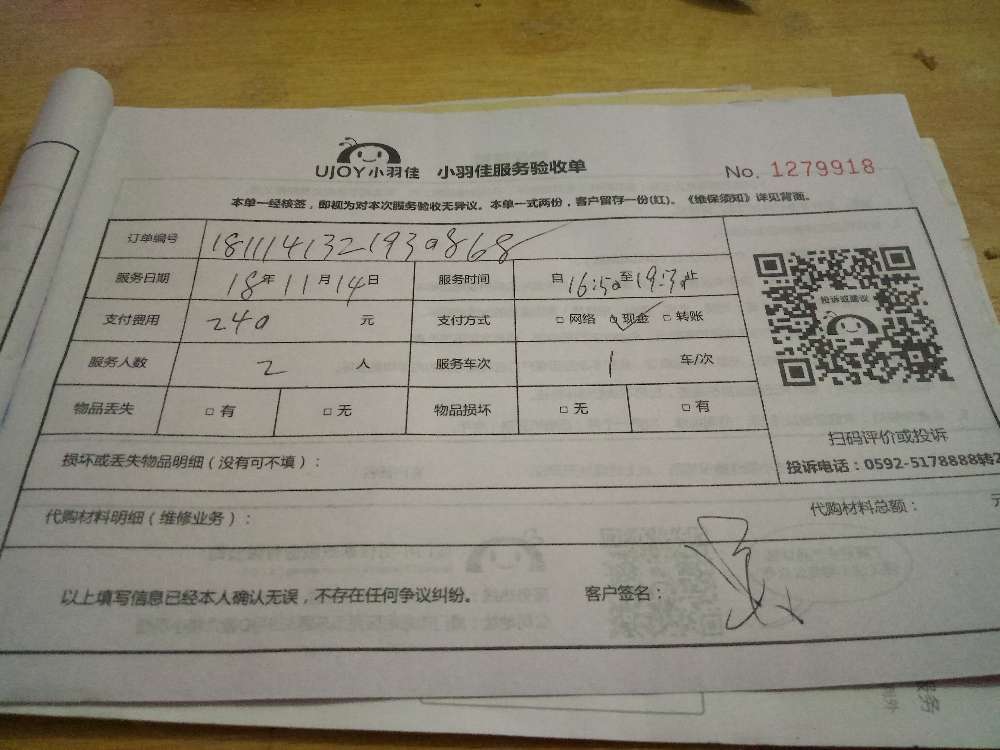 UJOY小羽佳 小羽佳服务验收单 No. 1279918
本单一经核签，即视为对本次服务验收无异议。本单一式两份，客户留存一份(红)。《维保须知》详见背面。
订单编号 1811141321930868
服务日期 18年11月14日 服务时间 自16:50至19:30止
支付费用 240 元 支付方式 □网络 □现金 □转账
服务人数 2 人 服务车次 1 车/次
物品丢失 □有 □无 物品损坏 □无 □有
投诉或建议
扫码评价或投诉
投诉电话：0592-5178888转2
损坏或丢失物品明细（没有可不填）：
代购材料明细（维修业务）： 代购材料总额： 元
以上填写信息已经本人确认无误，不存在任何争议纠纷。 客户签名：